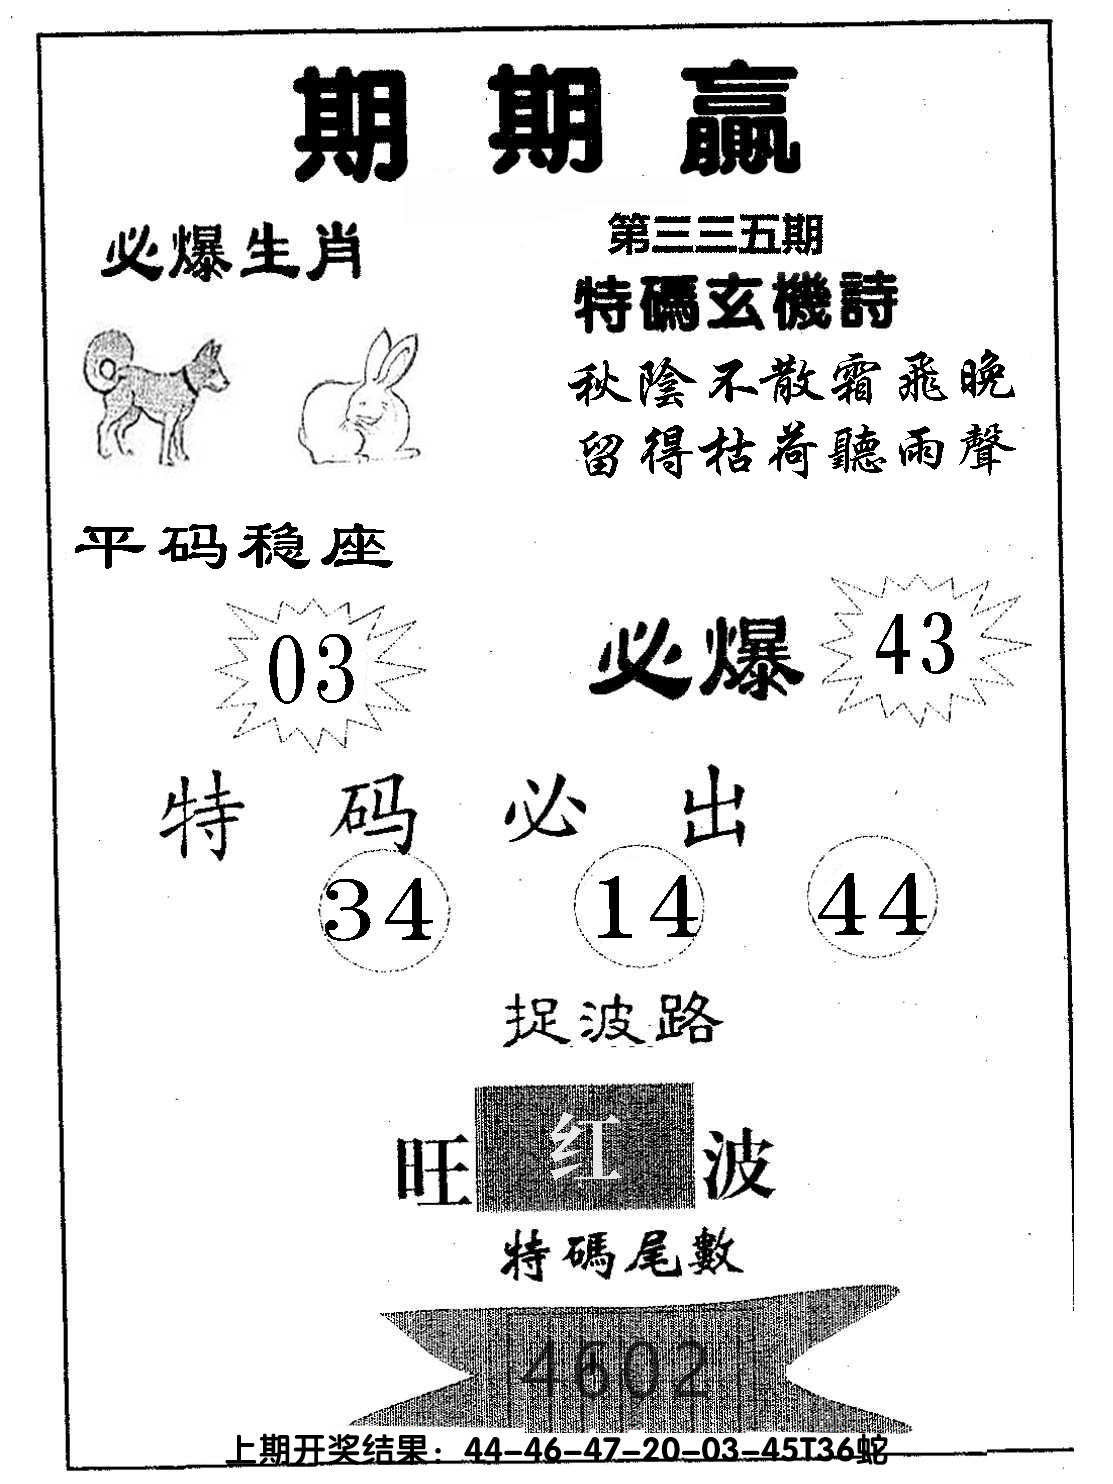 期期贏
必爆生肖
第三三五期
特碼玄機詩
秋陰不散霜飛晚
留得枯荷聽雨聲
平码稳座
03
必爆 43
特码必出
34 14 44
捉波路
旺红波
特碼尾數
4602
上期开奖结果：44-46-47-20-03-45T36蛇